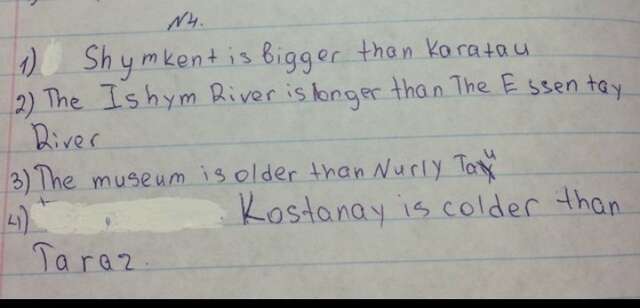 N4.
1) Shymkent is bigger than Karatau
2) The Ishym River is longer than The Essentay
River
3) The museum is older than Nurly Tau
4) Kostanay is colder than
Taraz.